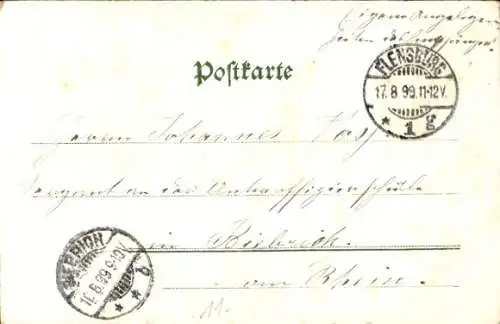 Eigene Angelegen-
heiten des Empfängers
Postkarte
FLENSBURG
17.8.99.11-12V.
* 1 g
Herrn Johannes
Sergeant an der Unteroffizierschule
in Biebrich
am Rhein.
BIEBRICH
9-10V.
* * b
11.